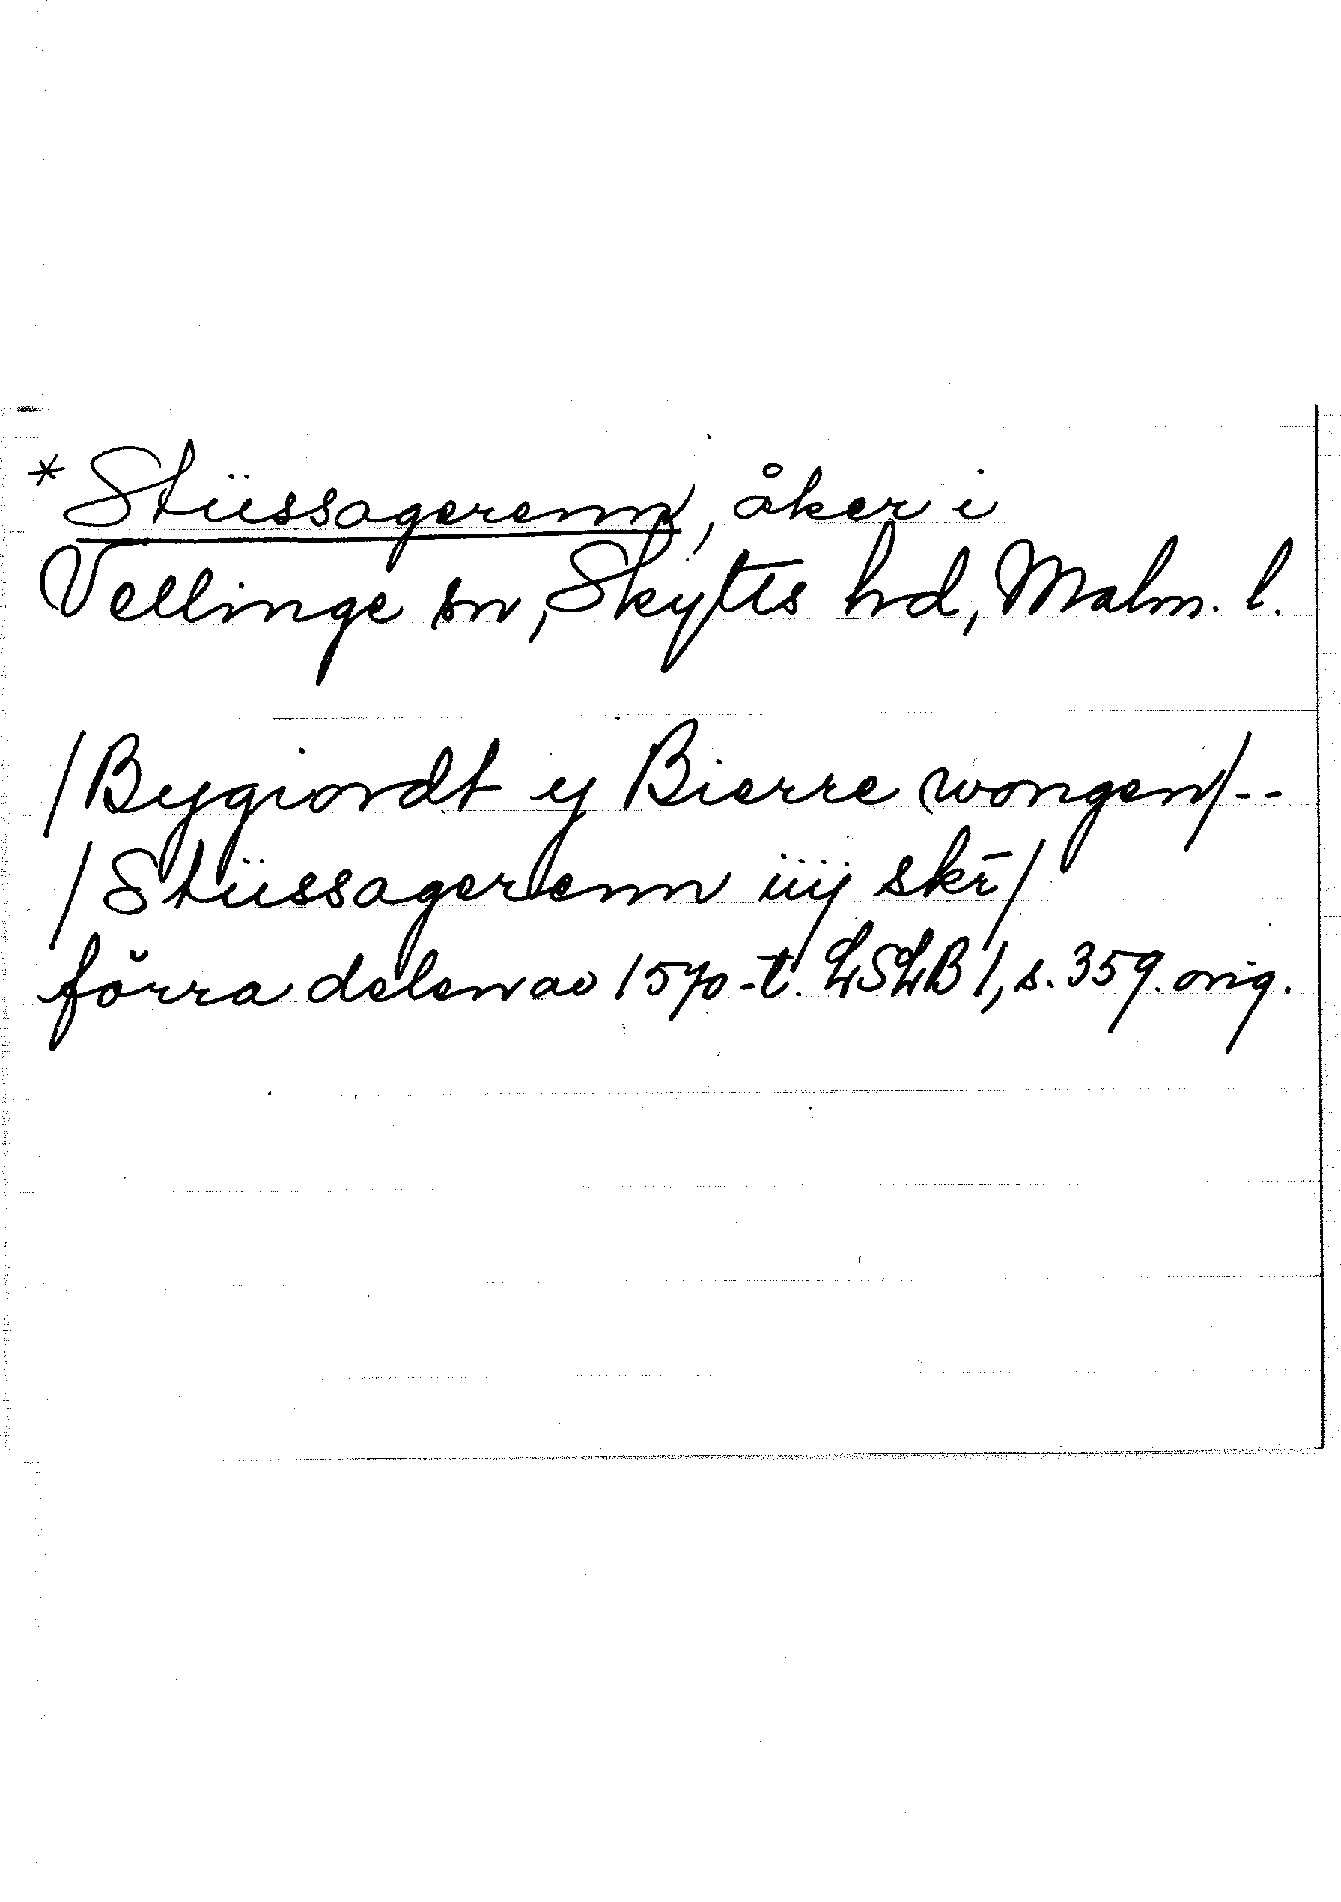 *Stüssagerenn, åker i
Vellinge sn, Skytts hd, Malm. l.
/Bygiordt y Bierre wongen/--
/Stüssagerenn iiij skr̄/
förra delen av 1570-t. LSLB 1, s. 359. orig.